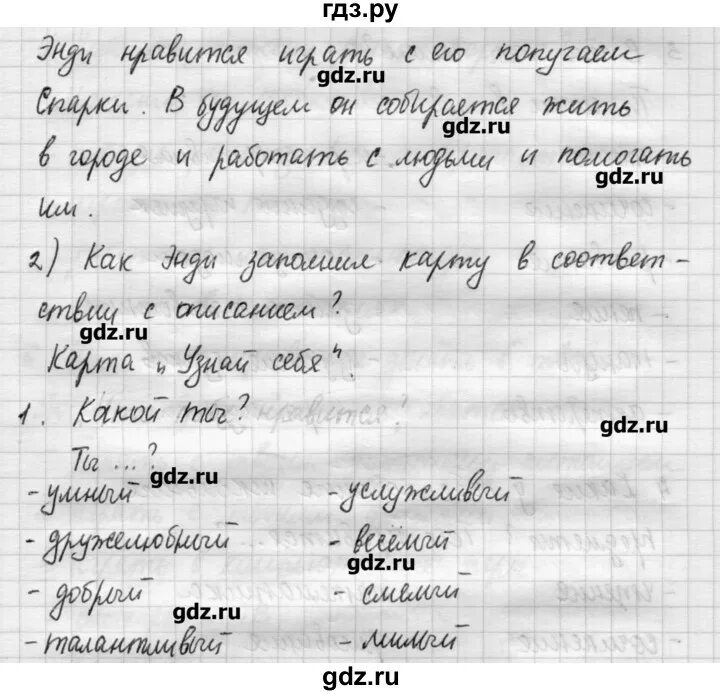 гдз.ру
Энди нравится играть с его попугаем
gdz.ru
Спарки. В будущем он собирается жить
gdz.ru
в городе и работать с людьми и помогать
gdz.ru
им.
2) Как Энди заполнил карту в соответ-
ствии с описанием?
gdz.ru
Карта "Узнай себя".
1. Какой ты?
gdz.ru
Ты ...?
gdz.ru
- умный - услужливый
- дружелюбный - весёлый
gdz.ru
- добрый - смелый
gdz.ru
- талантливый - милый
gdz.ru